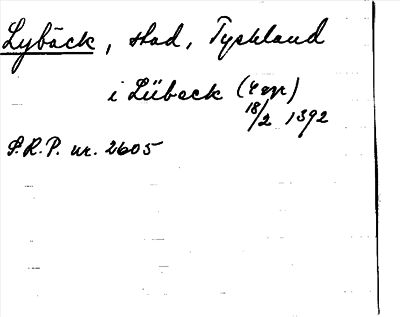 Lybäck, stad, Tyskland
i Lübeck (Cop)
18/2 1392
S.R.P. nr. 2605